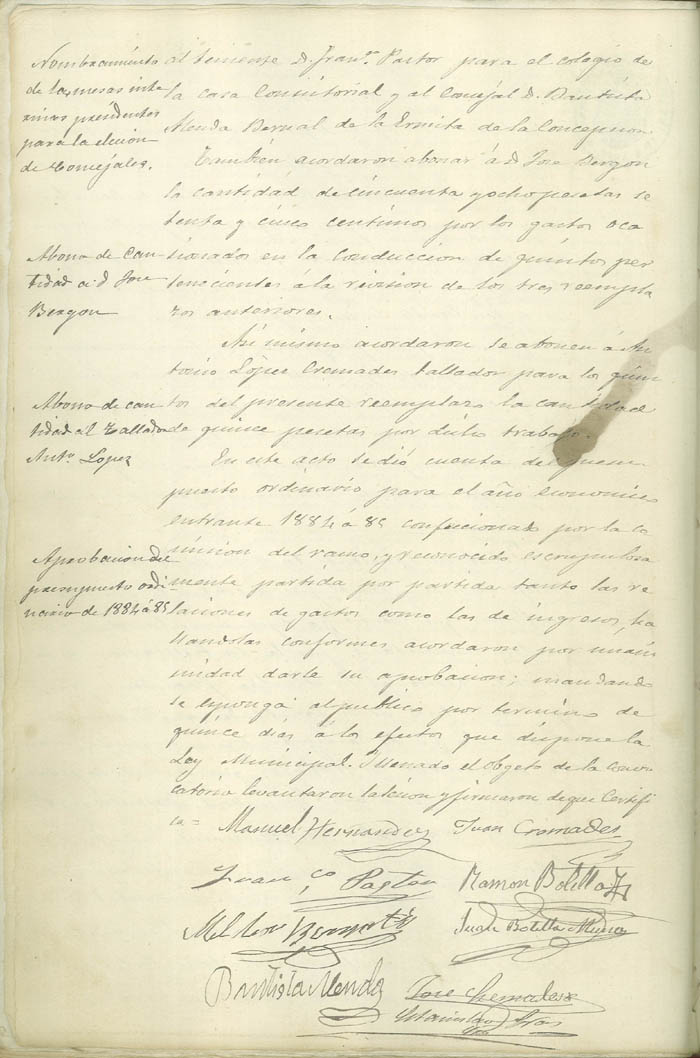 Nombramiento
de las mesas inte
rinas presidentes
para la eleccion
de Concejales.
al teniente D. Franco. Pastor para el colegio de
la casa Consistorial y al Concejal D. Bautista
Menda Bernal de la Ermita de la Concepcion
Tambien acordaron abonar á D Jose Bergon
la cantidad de cincuenta y ocho pesetas se
tenta y cinco centimos por los gastos oca
Abono de Can-
tidad a D Jose
Bergon
sionados en la conduccion de quintos per
tenecientes á la revision de los tres reempla
zos anteriores.
Asi mismo acordaron se abonen á An
tonio López Cremades tallador para los quin
Abono de can
tidad al Tallador
Anto. Lopez
tos del presente reemplazo la cantidad
de quince pesetas por dicho trabajo.
En este acto se dió cuenta del presu-
puesto ordinario para el año economico
entrante 1884 á 85 confeccionado por la co
Aprobacion del
presupuesto ordi-
nario de 1884 á 85
mision del ramo, y reconocido escrupulosa
mente partida por partida tanto las re
laciones de gastos como las de ingresos, ha
llandolas conformes acordaron por unani
midad darle su aprobacion; mandando
se esponga al publico por termino de
quince dias á los efectos que dispone la
Ley Municipal. Y llenado el obgeto de la convo
catoria levantaron la sesion y firmaron de que Certifi
co=
Manuel Hernandez Juan Cremades
Franco. Pastor Ramon Botella
Juan Botella
Bautista Menda Jose Cremades
Estanislao